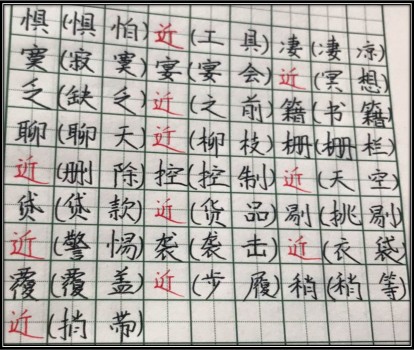 惧(惧怕)近(工具)凄(凄凉)
寞(寂寞)宴(宴会)近(冥想)
乏(缺乏)近(之前)籍(书籍)
聊(聊天)近(柳枝)栅(栅栏)
近(删除)控(控制)近(天空)
贷(贷款)近(货品)剔(挑剔)
近(警惕)袭(袭击)近(衣袋)
覆(覆盖)近(步履)稍(稍等)
近(捎带)